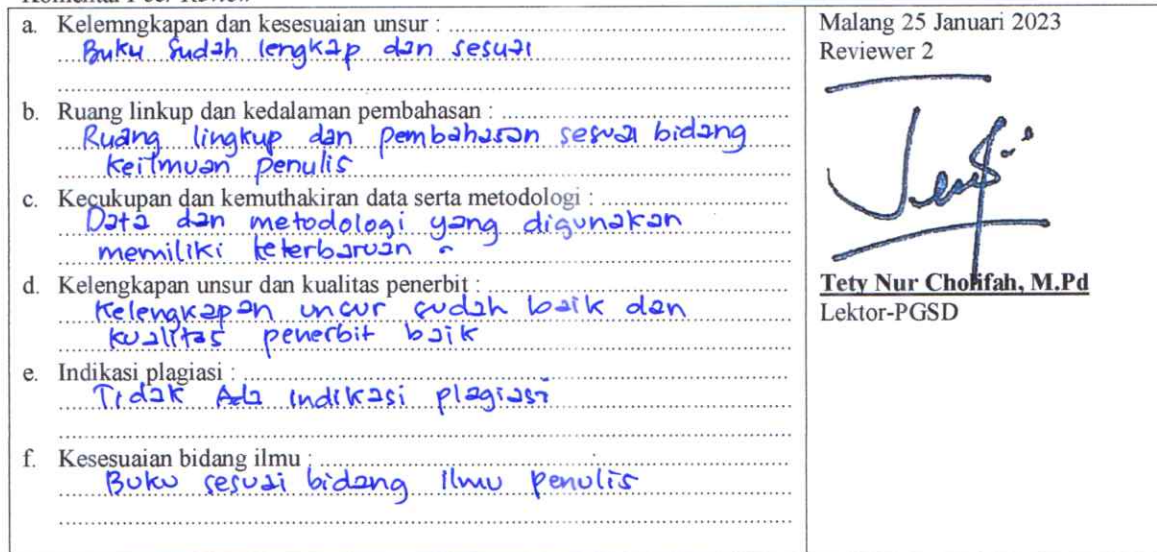 Komentar Peer Review
a. Kelemngkapan dan kesesuaian unsur :
Buku sudah lengkap dan sesuai
b. Ruang linkup dan kedalaman pembahasan :
Ruang lingkup dan pembahasan sesuai bidang
keilmuan penulis
c. Kecukupan dan kemuthakiran data serta metodologi :
Data dan metodologi yang digunakan
memiliki keterbaruan
d. Kelengkapan unsur dan kualitas penerbit :
Kelengkapan unsur sudah baik dan
kualitas penerbit baik
e. Indikasi plagiasi :
Tidak Ada indikasi plagiasi
f. Kesesuaian bidang ilmu :
Buku sesuai bidang ilmu penulis
Malang 25 Januari 2023
Reviewer 2
Tety Nur Cholifah, M.Pd
Lektor-PGSD